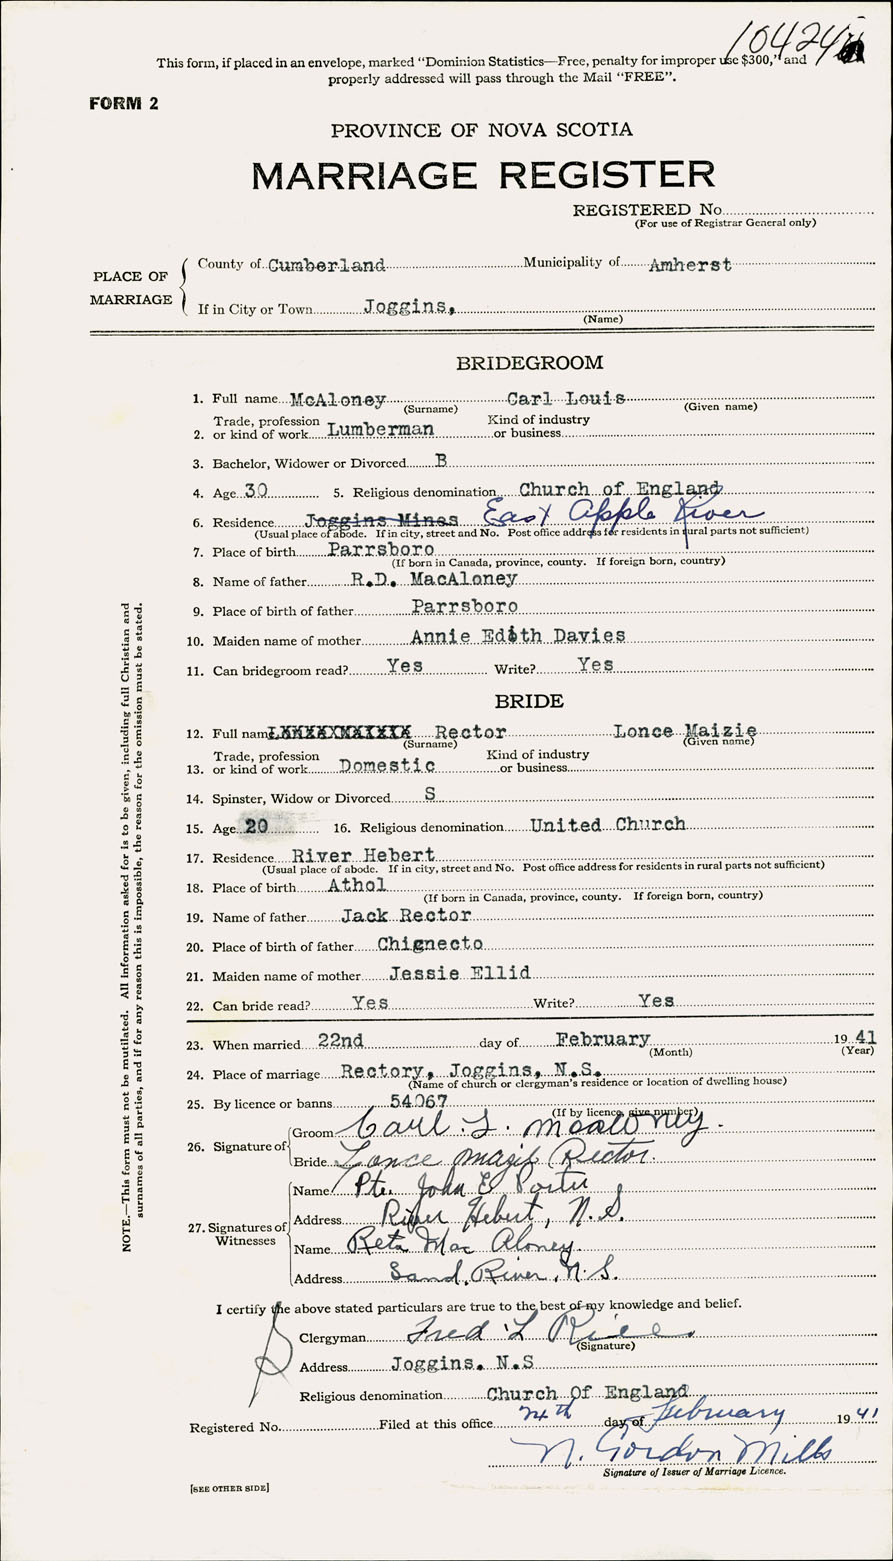 104244
This form, if placed in an envelope, marked "Dominion Statistics—Free, penalty for improper use $300," and
properly addressed will pass through the Mail "FREE".
FORM 2
PROVINCE OF NOVA SCOTIA
MARRIAGE REGISTER
REGISTERED No.
(For use of Registrar General only)
PLACE OF MARRIAGE
County of Cumberland Municipality of Amherst
If in City or Town Joggins,
(Name)
BRIDEGROOM
1. Full name McAloney Carl Louis
(Surname) (Given name)
Trade, profession Kind of industry
2. or kind of work Lumberman or business
3. Bachelor, Widower or Divorced B
4. Age 30 5. Religious denomination Church of England
6. Residence Joggins Mines East Apple River
(Usual place of abode. If in city, street and No. Post office address for residents in rural parts not sufficient)
7. Place of birth Parrsboro
(If born in Canada, province, county. If foreign born, country)
8. Name of father R.D. MacAloney
9. Place of birth of father Parrsboro
10. Maiden name of mother Annie Edith Davies
11. Can bridegroom read? Yes Write? Yes
BRIDE
12. Full name Rector Lonce Maizie
(Surname) (Given name)
Trade, profession Kind of industry
13. or kind of work Domestic or business
14. Spinster, Widow or Divorced S
15. Age 20 16. Religious denomination United Church
17. Residence River Hebert
(Usual place of abode. If in city, street and No. Post office address for residents in rural parts not sufficient)
18. Place of birth Athol
(If born in Canada, province, county. If foreign born, country)
19. Name of father Jack Rector
20. Place of birth of father Chignecto
21. Maiden name of mother Jessie Ellid
22. Can bride read? Yes Write? Yes
23. When married 22nd day of February 1941
(Month) (Year)
24. Place of marriage Rectory, Joggins, N.S.
(Name of church or clergyman's residence or location of dwelling house)
25. By licence or banns 54067
(If by licence, give number)
26. Signature of
Groom Carl. L. McAloney.
Bride Lonce Mazie Rector.
27. Signatures of Witnesses
Name Pte. John E Porter
Address River Hebert, N.S.
Name Reta Mac Aloney.
Address Sand River, N.S.
I certify the above stated particulars are true to the best of my knowledge and belief.
Clergyman Fred L Rice
(Signature)
Address Joggins. N.S
Religious denomination Church Of England
Registered No. Filed at this office 24th day of February 1941
N. Gordon Mills
Signature of Issuer of Marriage Licence.
[SEE OTHER SIDE]
NOTE.—This form must not be mutilated. All information asked for is to be given, including full Christian and
surnames of all parties, and if for any reason this is impossible, the reason for the omission must be stated.